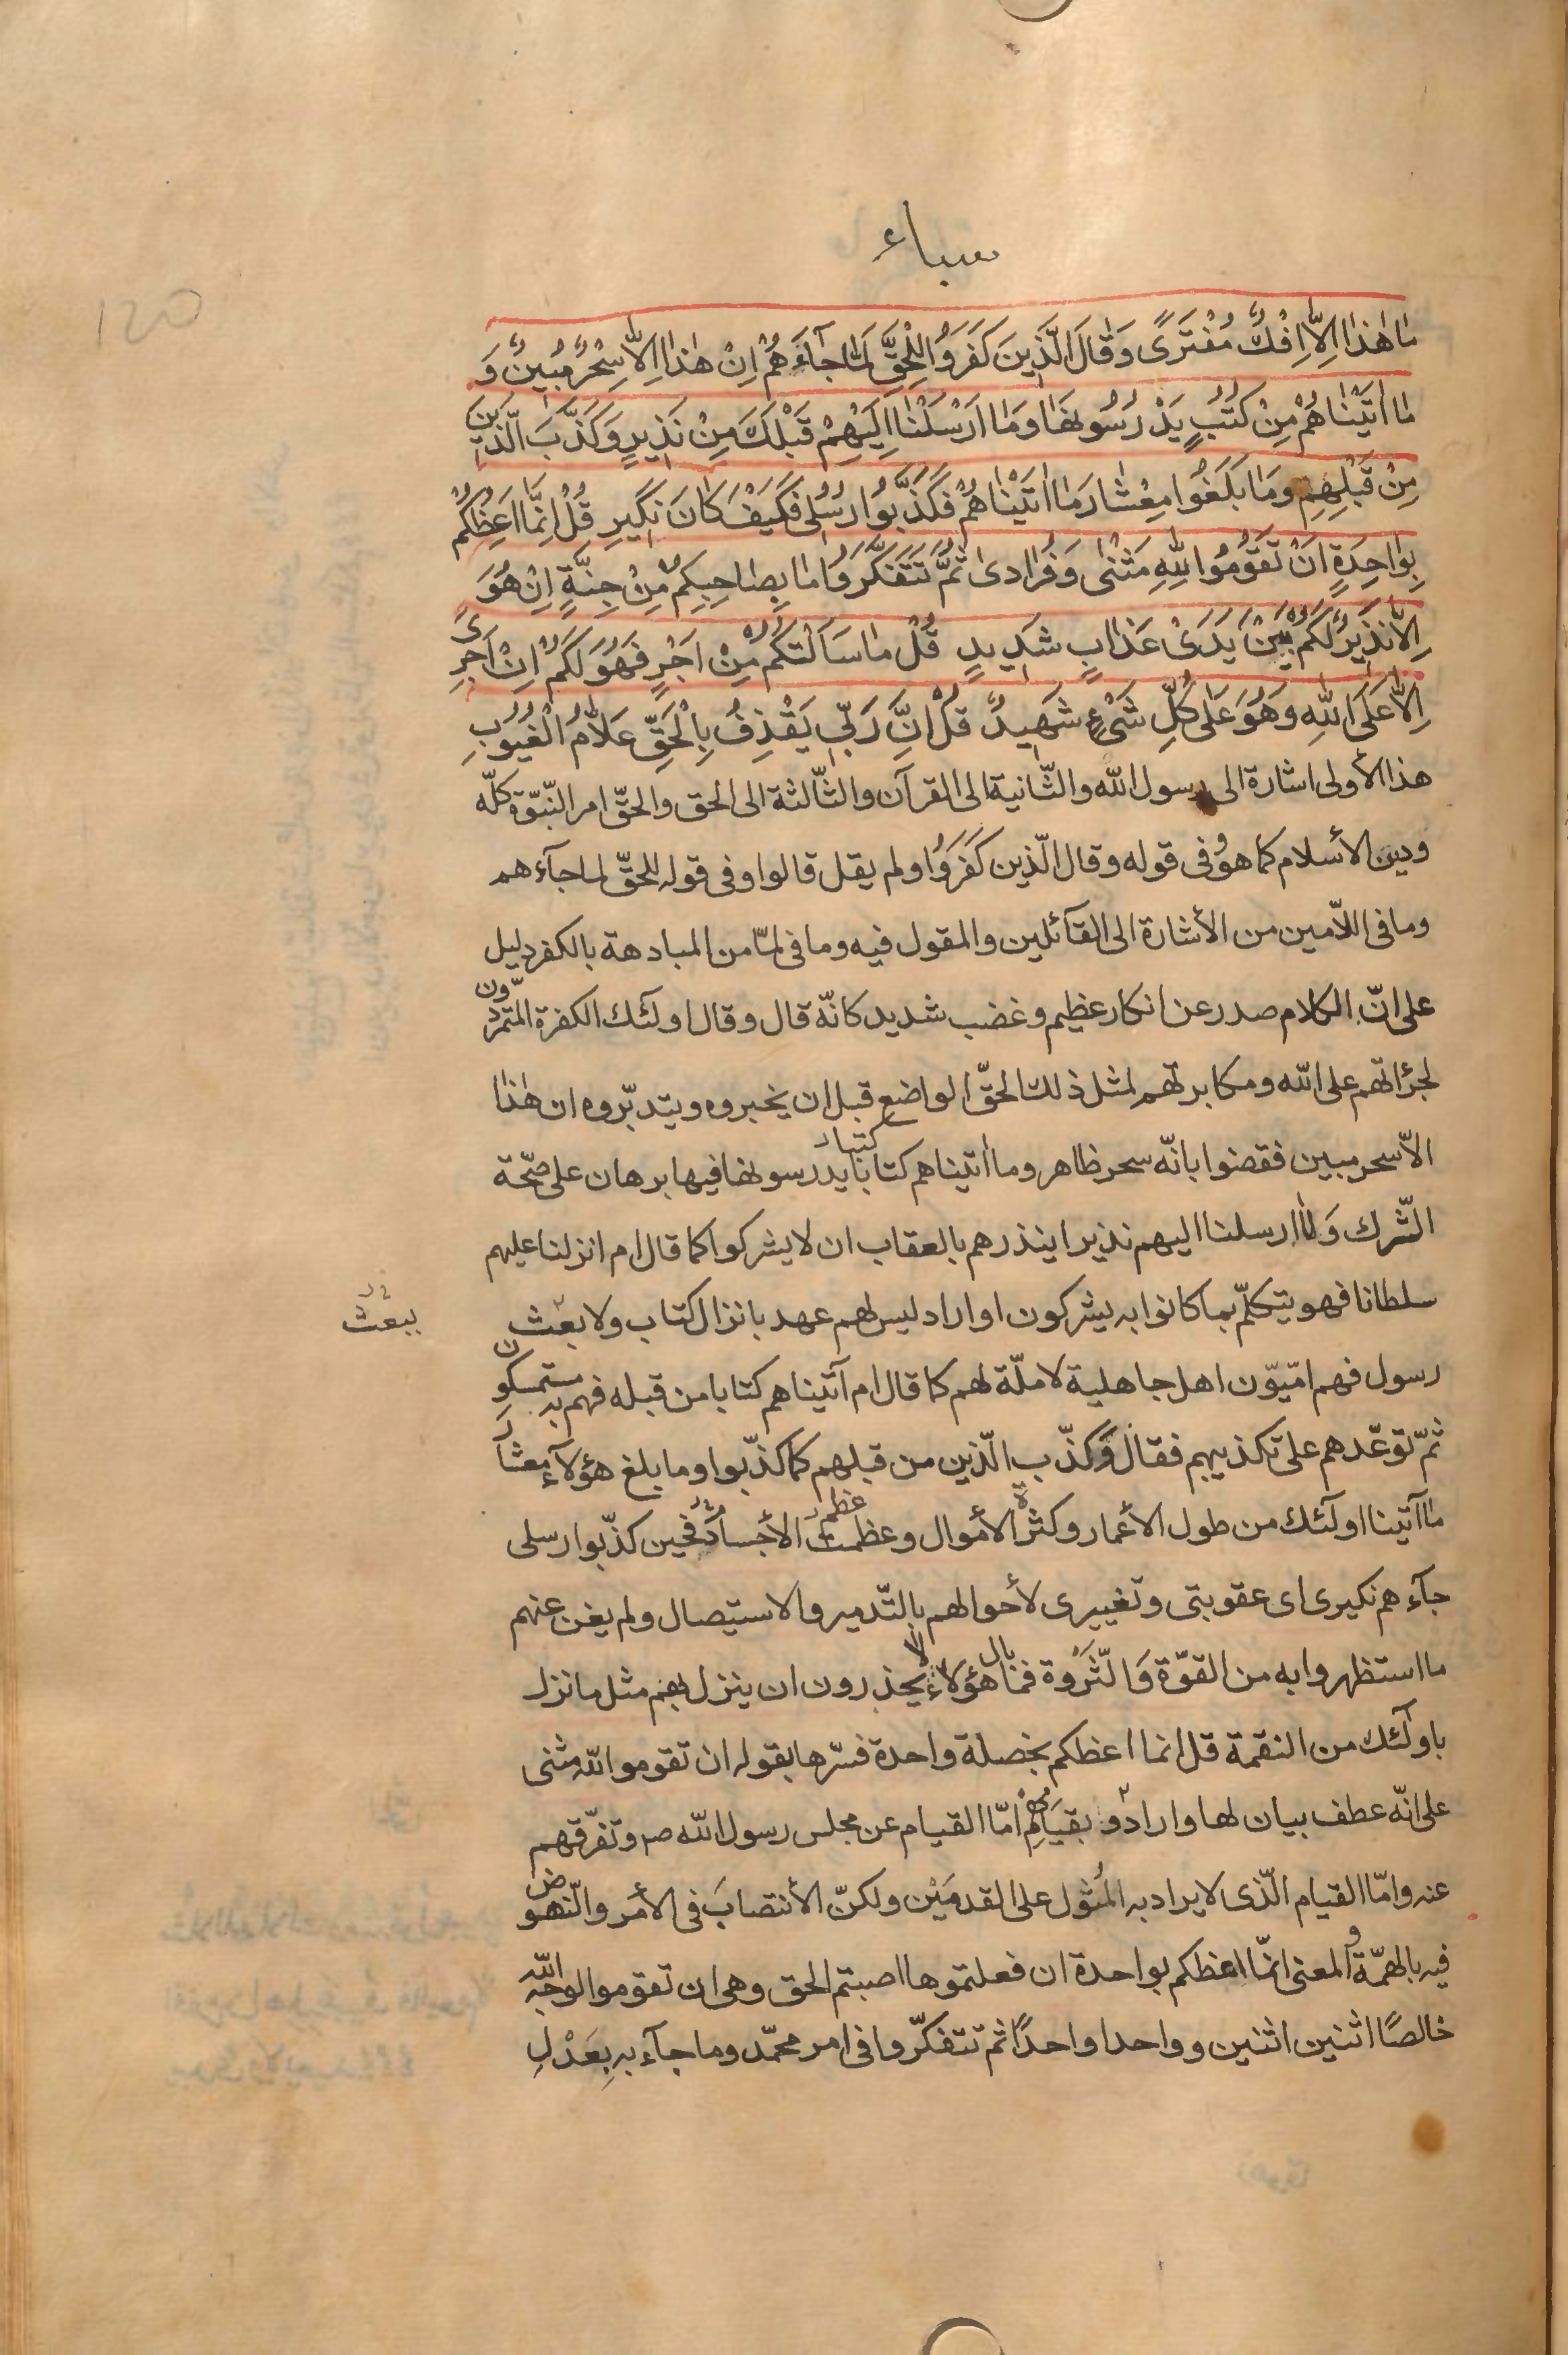 سباء
120
مٰا هٰذٰا اِلّٰا اِفْكٌ مُفْتَرًى وَقٰالَ الَّذِينَ كَفَرَوُا لِلْحَقِّ لَمّٰا جآءَهُمْ اِنْ هٰذٰا اِلّٰا سِحْرٌ مُبِينٌ وَ
مٰا اٰتَيْنٰاهُمْ مِنْ كُتُبٍ يَدْرُسُونَهٰا وَمٰا اَرْسَلْنٰا اِلَيْهِمْ قَبْلَكَ مِنْ نَذِيرٍ وَكَذَّبَ الَّذِينَ
مِنْ قَبْلِهِمْ وَمٰا بَلَغُوا مِعْشٰارَ مٰا اٰتَيْنٰاهُمْ فَكَذَّبُوا رُسُلِى فَكَيْفَ كٰانَ نَكِيرِ قُلْ اِنَّمٰا اَعِظُكُمْ
بِوٰاحِدَةٍ اَنْ تَقوُمُوا لِلّٰهِ مَثْنٰى وَفُرٰادىٰ ثُمَّ تَتَفَكَّرَوُا مٰا بِصٰاحِبِكُمْ مِنْ جِنَّةٍ اِنْ هُوَ
اِلّٰا نَذِيرٌ لَكُمْ بَيْنَ يَدَىْ عَذٰابٍ شَدِيدٍ قُلْ مٰا سَاَلْتُكُمْ مِنْ اَجْرٍ فَهُوَ لَكُمْ اِنْ اَجْرِىَ
اِلّٰا عَلَى اللّٰهِ وَهُوَ عَلٰى كُلِّ شَىْءٍ شَهِيدٌ قُلْ اِنَّ رَبِّى يَقْذِفُ بِالْحَقِّ عَلّٰامُ الْغُيُوبِ
هذا الأولى اشارة الى رسول الله والثّانية الى القرآن والثّالثة الى الحق والحقّ امر النّبوّة كلّه
ودين الأسلام كما هو وفى قوله وقال الّذين كَفَرَوُا ولم يقل قالوا وفى قوله للحقّ لما جآءهم
وما فى اللاّمين من الأشارة الى القآئلين والمقول فيه وما فى لمّا من المبادهة بالكفر دليل
على انّ الكلام صدر عن انكار عظيم وغضب شديد كانّه قال وقال اولئك الكفرة المتمرّدون
لجرأتهم على الله ومكابرتهم لمثل ذلك الحقّ الواضح قبل ان يخبروه ويتدبّروه ان هٰذا
الاّ سحر مبين فقضوا بانّه سحر ظاهر وما اٰتيناهم كتابا كتبا يدرسونها فيها برهان على صحّة
الشّرك وَلٰا ارسلنا اليهم نذيرا ينذرهم بالعقاب ان لا يشركوا كما قال ام انزلنا عليهم
سلطانا فهو يتكلّم بما كانوا به يشركون او اراد ليس لهم عهد بانزال كتاب ولا بعث
ببعث
رسول فهم امّيّون اهل جاهلية لا ملّة لهم كما قال ام آتيناهم كتابا من قبله فهم به مستمسكون
ثمّ توعّدهم على تكذيبهم فقال وَكذّب الّذين من قبلهم كما كذّبوا وما بلغ هؤلآء معشار
ما آتينا اولئك من طول الأعمار وكثرة الأموال وعظمت عظم الأجساد فحين كذّبوا رسلى
جآءهم نكيرى اى عقوبتى وتغييرى لأحوالهم بالتّدمير والاستيصال ولم يغن عنهم
ما استظهروا به من القوّة وَالثّرْوَة فما بال هؤلآء لا يحذرون ان ينزل بهم مثل ما نزل
باولئك من النقمة قل انما اعظكم بخصلة واحدة فسّرها بقوله ان تقوموا لله مثنى
على انّه عطف بيان لها واراد بقيامهم امّا القيام عن مجلس رسول الله صم وتفرّقهم
عنه وامّا القيام الّذى لا يراد به المُثول على القدمَيْن ولكنّ الأنتصابَ فى الأمر والنّهوض
فيه بالهمّة والمعنى انمّا اعظكم بواحدة ان فعلتموها اصبتم الحق وهى ان تقوموا لوجه الله
خالصًا اثنين اثنين وواحدا واحدًا ثم تتفكّروا فى امر محمّد وما جآء به بِعَدْلِ